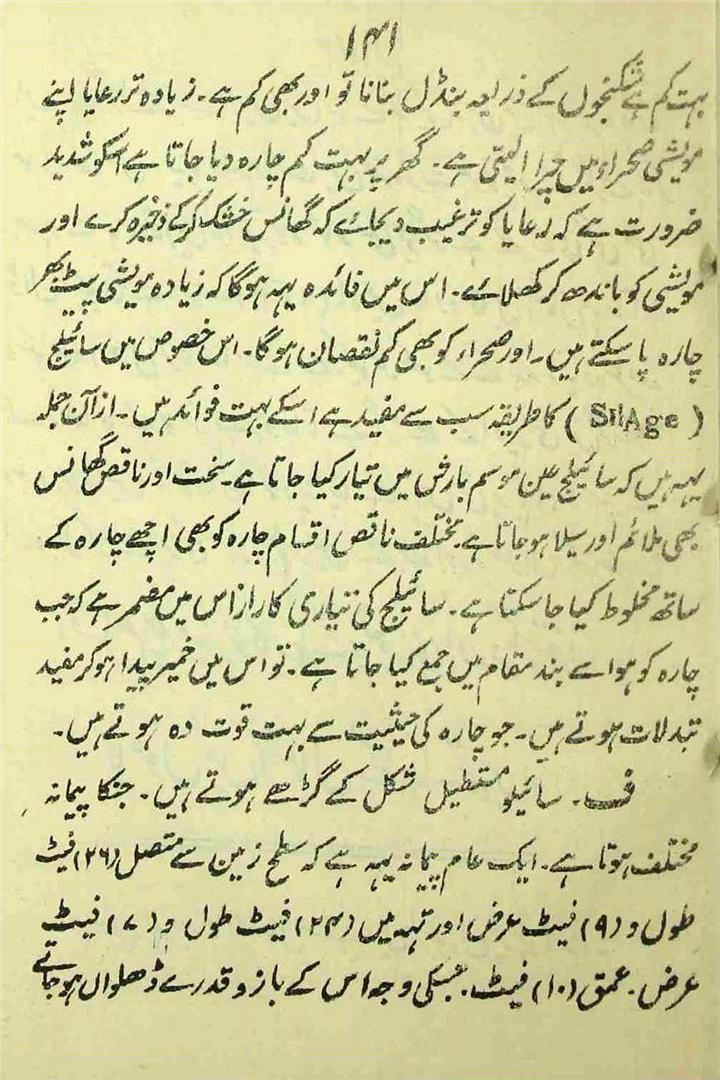 ۱۴۱
بہت کم ہے شکنجوں کے ذریعہ بنڈل بنانا تو اور بھی کم ہے۔ زیادہ تر رعایا اپنے
مویشی صحراء میں چرا لیتی ہے۔ گھر پر بہت کم چارہ دیا جاتا ہے اسکو شدید
ضرورت ہے کہ رعایا کو ترغیب دیجائے کہ گھانس خشک کرکے ذخیرہ کرے اور
مویشی کو باندھ کر کھلائے۔ اس میں فائدہ یہہ ہوگا کہ زیادہ مویشی پیٹ بھر
چارہ پا سکتے ہیں۔ اور صحراء کو بھی کم نقصان ہوگا۔ اس خصوص میں سائیلج
(SilAge) کا طریقہ سب سے مفید ہے اسکے بہت فوائد ہیں۔ ازآن جملہ
یہہ ہیں کہ سائیلج عین موسم بارش میں تیار کیا جاتا ہے۔ سخت اور ناقص گھانس
بھی ملائم اور سیلا ہوجاتا ہے۔ مختلف ناقص اقسام چارہ کو بھی اچھے چارہ کے
ساتھ مخلوط کیا جا سکتا ہے۔ سائیلج کی تیاری کا راز اس میں مضمر ہے کہ جب
چارہ کو ہوا سے بند مقام میں جمع کیا جاتا ہے۔ تو اس میں خمیر پیدا ہوکر مفید
تبدلات ہوتے ہیں۔ جو چارہ کی حیثیت سے بہت قوت دہ ہوتے ہیں۔
ف۔ سائیلو مستطیل شکل کے گڑھے ہوتے ہیں۔ جنکا پیمانہ
مختلف ہوتا ہے۔ ایک عام پیمانہ یہہ ہے کہ سطح زمین سے متصل (۲۶) فیٹ
طول و (۹) فیٹ عرض اور تہہ میں (۲۴) فیٹ طول و (۷) فیٹ
عرض۔ عمق (۱۰) فیٹ۔ جسکی وجہ اس کے بازو قدرے ڈھلواں ہوجاتے